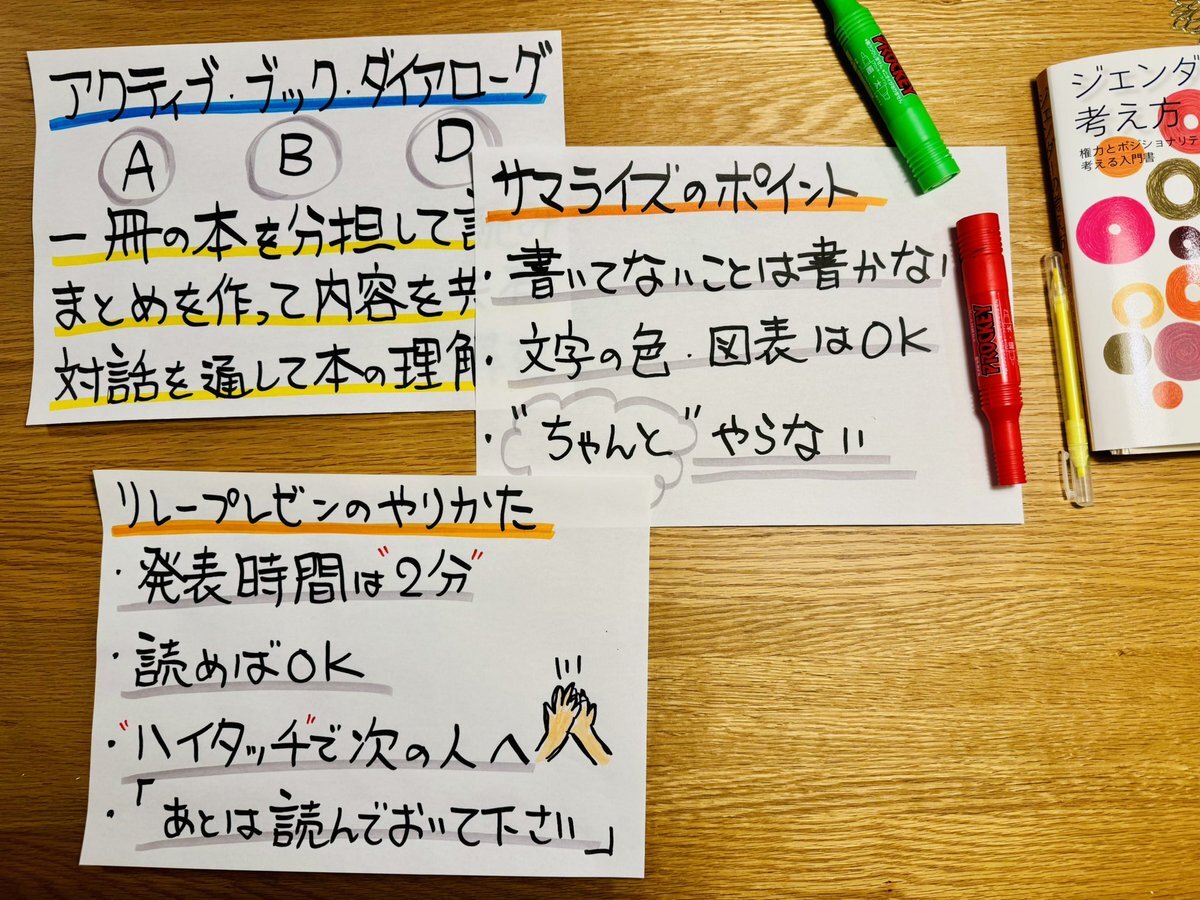 アクティブ・ブック・ダイアローグ
A B D
一冊の本を分担して
まとめを作って内容を
対話を通して本の理解
サマライズのポイント
・書いてないことは書かない
・文字の色・図表はOK
・"ちゃんと"やらない
リレープレゼンのやりかた
・発表時間は"2分"
・読めばOK
・"ハイタッチ"で次の人へ
・「あとは読んでおいて下さい」
PROCKEY
PROCKEY
ジェンダ
考え方
権力とポジショナリテ
考える入門書